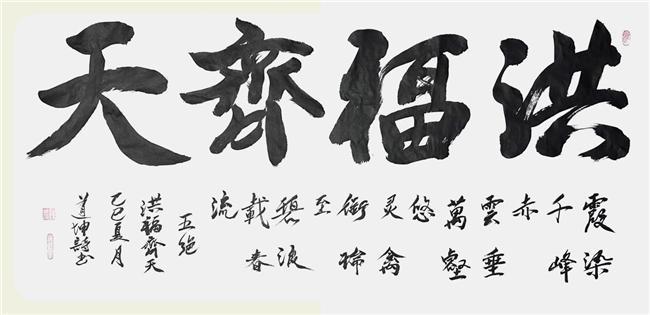 洪福齊天
霞染
千峰
赤
雲垂
萬壑
悠
灵禽
銜瑞
至
碧波
載春
流
五绝
洪福齊天
乙巳夏月
道坤詩书